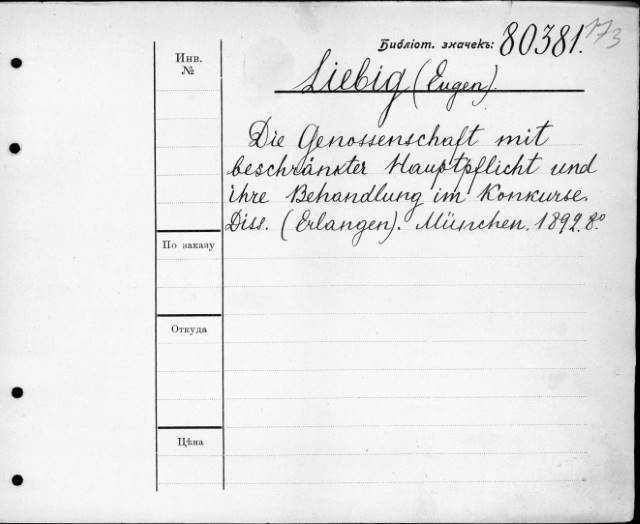 Библіот. значекъ: 80381. 173
Инв. №
Liebig (Eugen).
Die Genossenschaft mit
beschränkter Hauptpflicht und
ihre Behandlung im Konkurse.
Diss. (Erlangen). München. 1892. 8.°
По заказу
Откуда
Цѣна